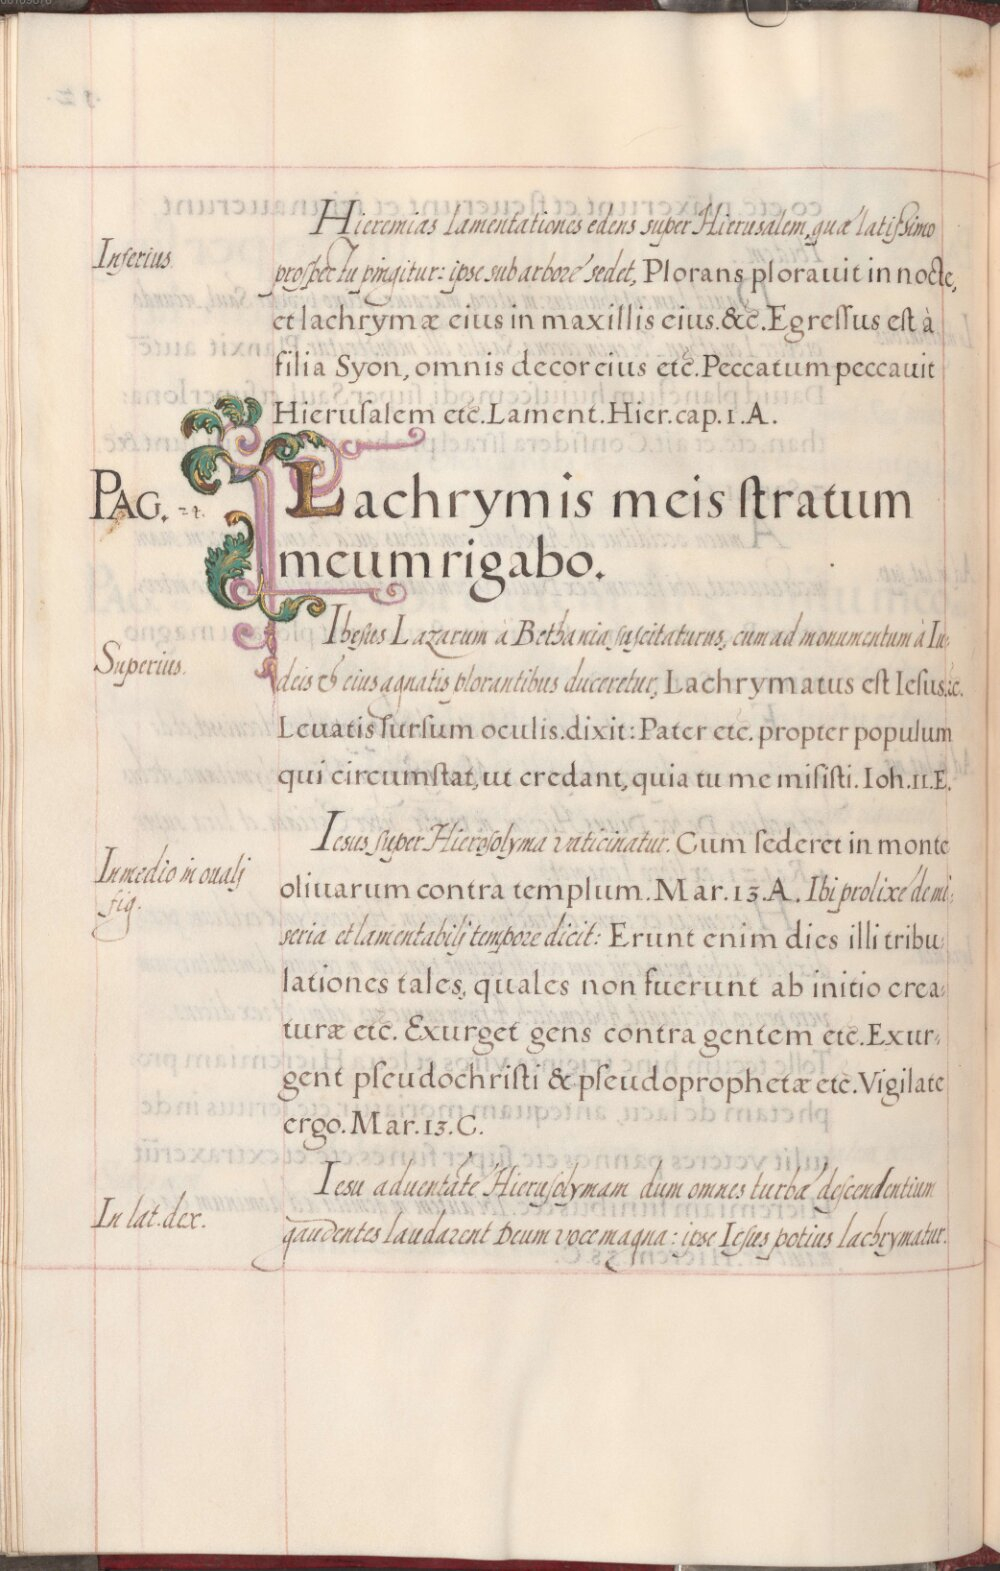 Hieremias lamentationes edens super Hierusalem, quæ latissimo
Inferius.
prospectu pingitur: ipse sub arbore sedet, Plorans plorauit in nocte,
et lachrymæ eius in maxillis eius. &c̃. Egreſſus eſt à
filia Syon, omnis decor eius etc̃. Peccatum peccauit
Hieruſalem etc̃. Lament. Hier. cap. 1. A.
PAG. 24.
Lachrymis meis ſtratum
meum rigabo.
Superius.
Ihesus Lazarum à Bethania suscitaturus, cum ad monumentum à Iu-
deis & eius agnatis plorantibus duceretur, Lachrymatus eſt Ieſus. &c.
Leuatis ſurſum oculis. dixit: Pater etc. propter populum
qui circumſtat, ut credant, quia tu me miſiſti. Ioh. 11. E.
In medio in ouali
fig.
Iesus super Hierosolyma vaticinatur. Cum ſederet in monte
oliuarum contra templum. Mar. 13. A. Ibi prolixe de mi-
seria et lamentabili tempore dicit: Erunt enim dies illi tribu-
lationes tales, quales non fuerunt ab initio crea-
turæ etc. Exurget gens contra gentem etc̃. Exur-
gent pſeudochriſti & pſeudoprophetæ etc. Vigilate
ergo. Mar. 13. C.
In lat. dex.
Iesu aduentate Hierusolymam dum omnes turbæ descendentium
gaudentes laudarent Deum voce magna: ipse Iesus potius lachrymatur.